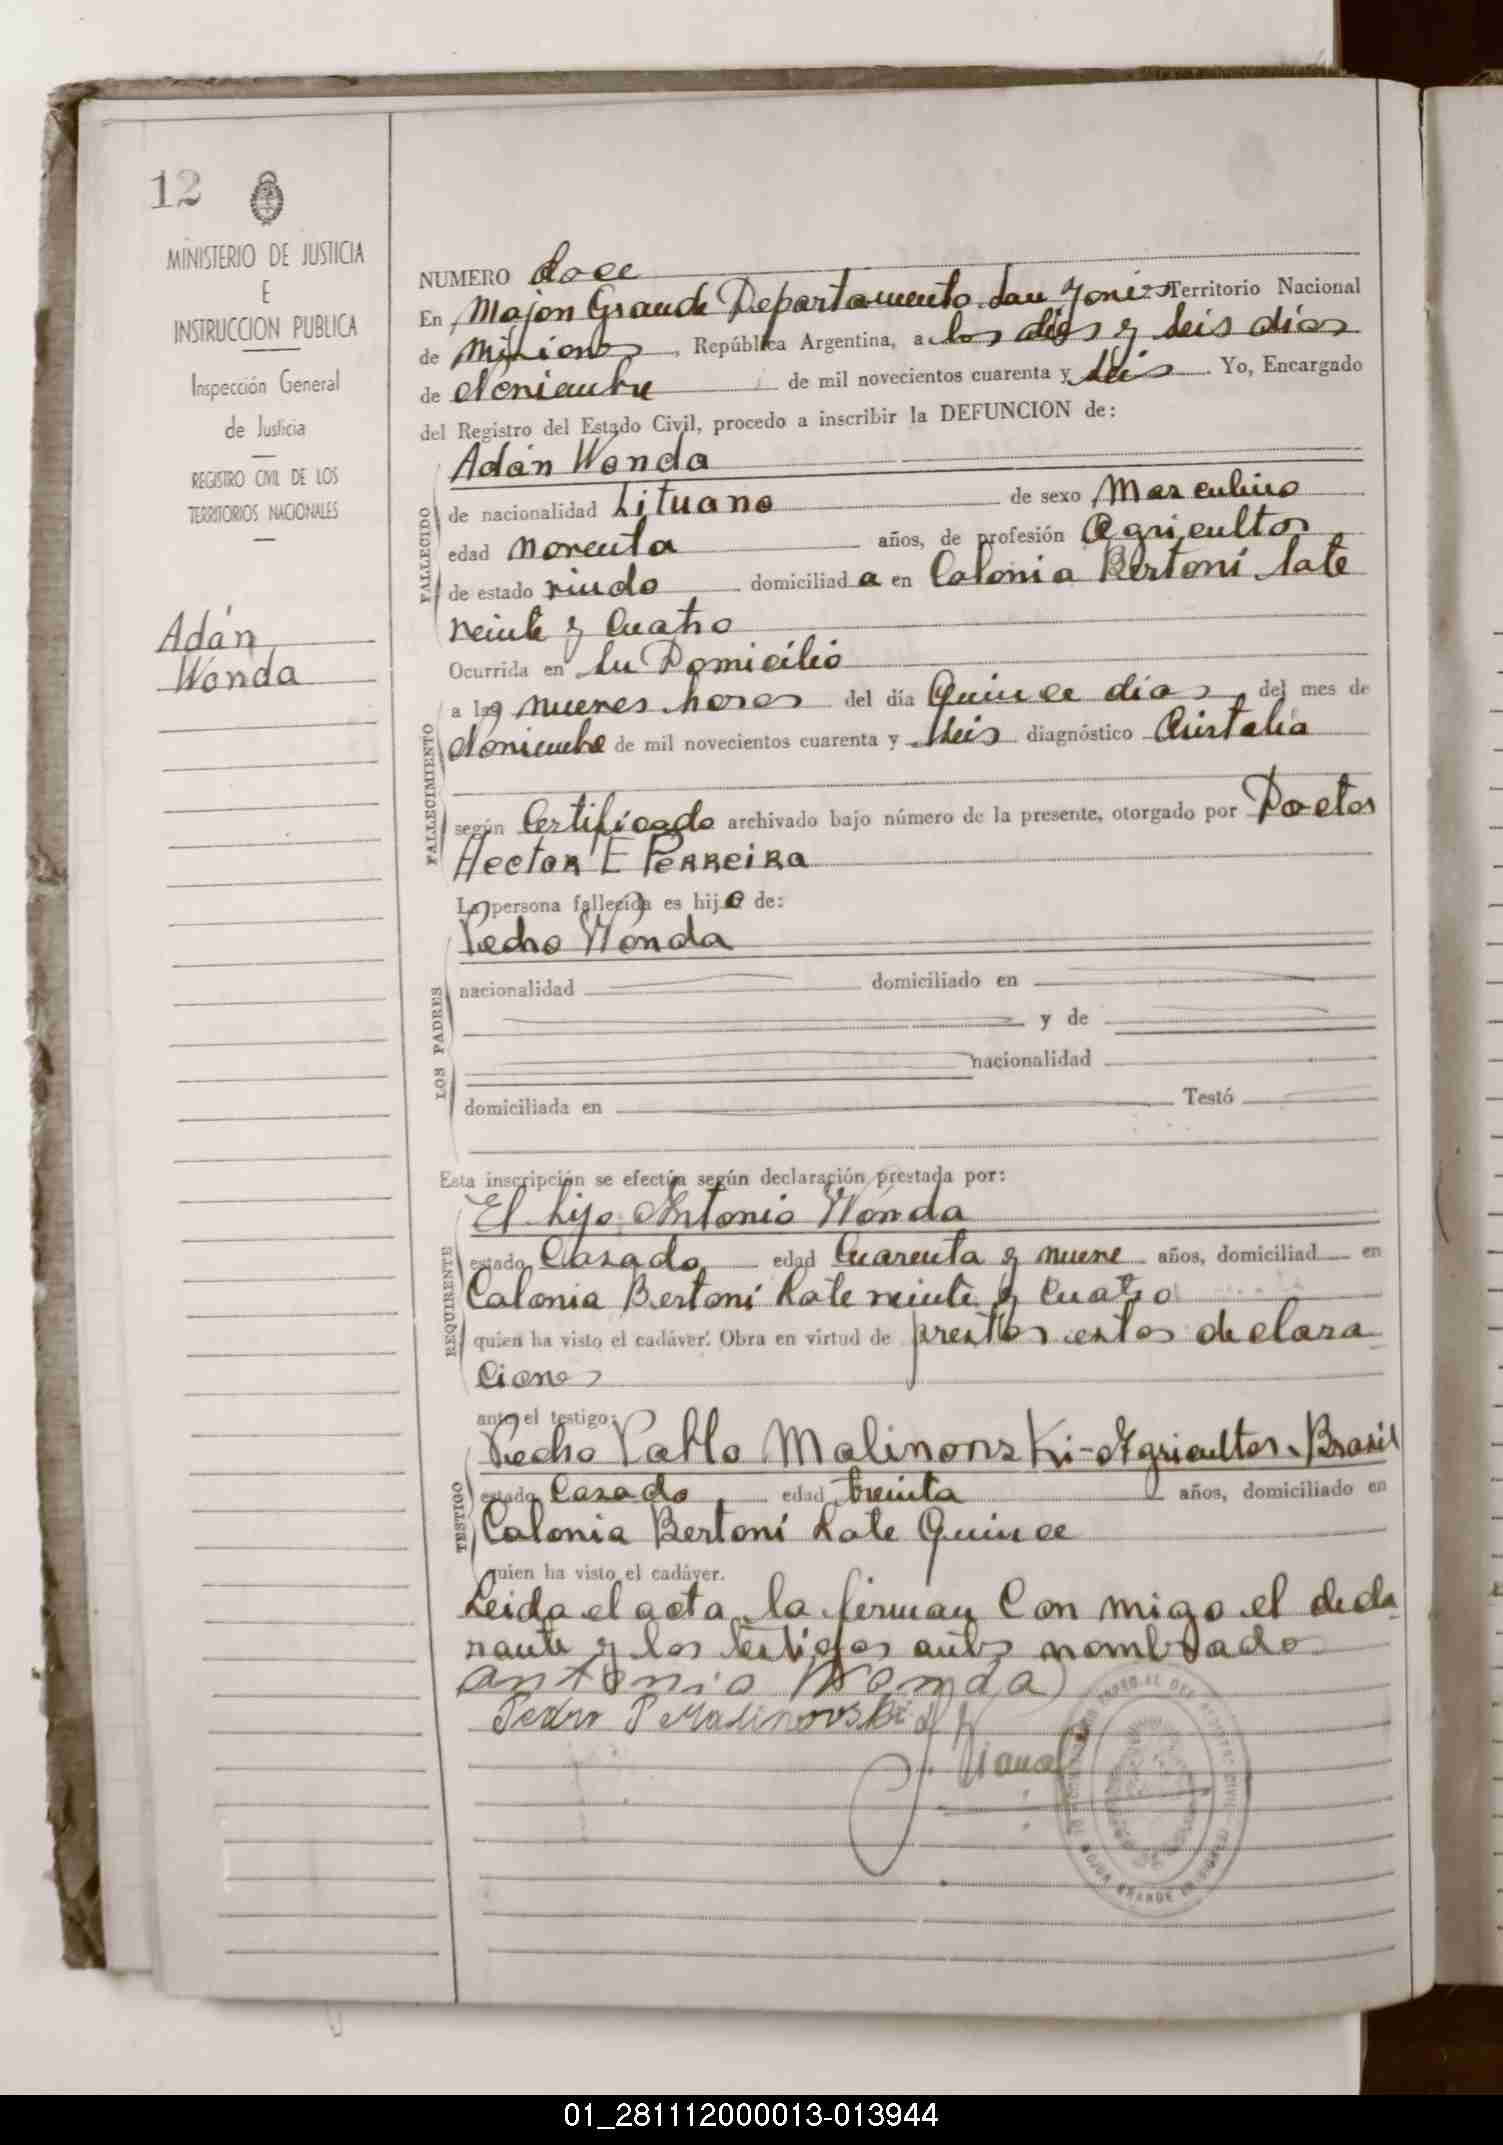 12
MINISTERIO DE JUSTICIA
E
INSTRUCCION PUBLICA
Inspección General
de Justicia
REGISTRO CIVIL DE LOS
TERRITORIOS NACIONALES
Adán
Wonda
NUMERO doce
En Mojon Grande Departamento San Territorio Nacional
de Misiones, República Argentina, a los dies y seis días
de de mil novecientos cuarenta y seis. Yo, Encargado
del Registro del Estado Civil, procedo a inscribir la DEFUNCION de:
Adán Wonda
FALLECIDO
de nacionalidad Lituano de sexo Masculino
edad noventa años, de profesión Agricultor
de estado viudo domiciliad o en Colonia Bertoni lote
veinte y Cuatro
FALLECIMIENTO
Ocurrida en su Domicilio
a las nueves horas del día Quince días, del mes de
de mil novecientos cuarenta y seis diagnóstico
según Certificado archivado bajo número de la presente, otorgado por Doctor
Hector E Perreira
LOS PADRES
La persona fallecida es hijo de:
Pedro Wonda
nacionalidad domiciliado en
y de
nacionalidad
domiciliada en Testó
Esta inscripción se efectúa según declaración prestada por:
REQUIRENTE
El hijo Antonio Wonda
estado Casado edad Cuarenta y nueve años, domiciliad en
Colonia Bertoni Lote veinte y Cuatro
quien ha visto el cadáver. Obra en virtud de estas declara
ciones
TESTIGO
ante el testigo:
Pedro Pablo Malinowski - Agricultor. Brasil
estado Casado edad treinta años, domiciliado en
Colonia Bertoni Lote Quince
quien ha visto el cadáver.
Leida el acta la firman Con migo el decla
rante y los testigos antes nombrado
antonio Wonda
Pedro P Malinovski
01_281112000013-013944